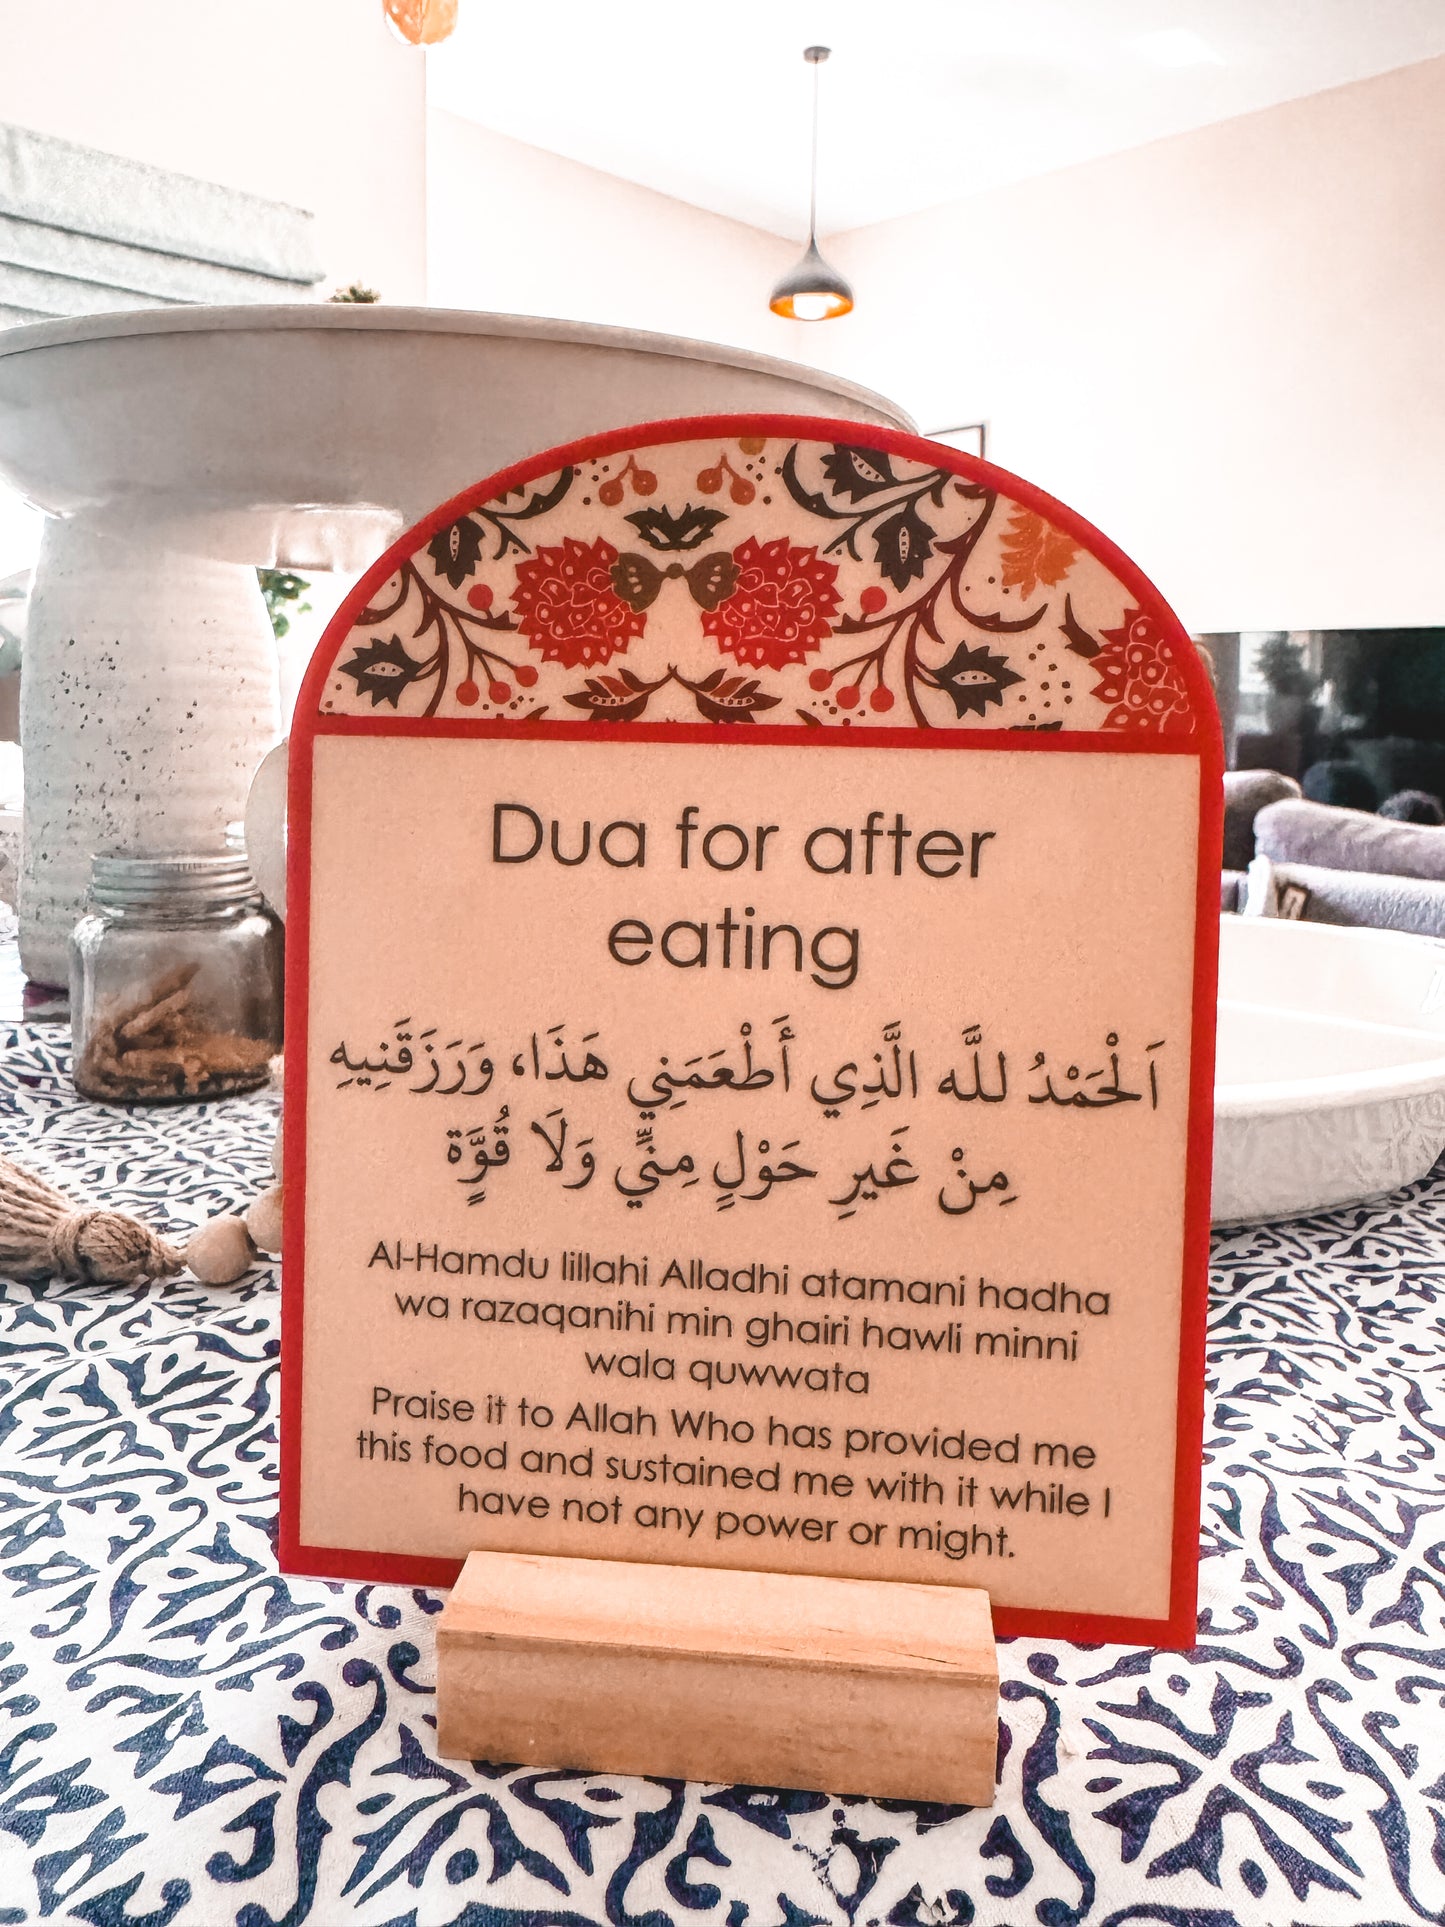 Dua for after
eating
اَلْحَمْدُ لله الَّذِي أَطْعَمَنِي هَذَا، وَرَزَقَنِيهِ
مِنْ غَيرِ حَوْلٍ مِنيِّ وَلَا قُوَّةٍ
Al-Hamdu lillahi Alladhi atamani hadha
wa razaqanihi min ghairi hawli minni
wala quwwata
Praise it to Allah Who has provided me
this food and sustained me with it while I
have not any power or might.